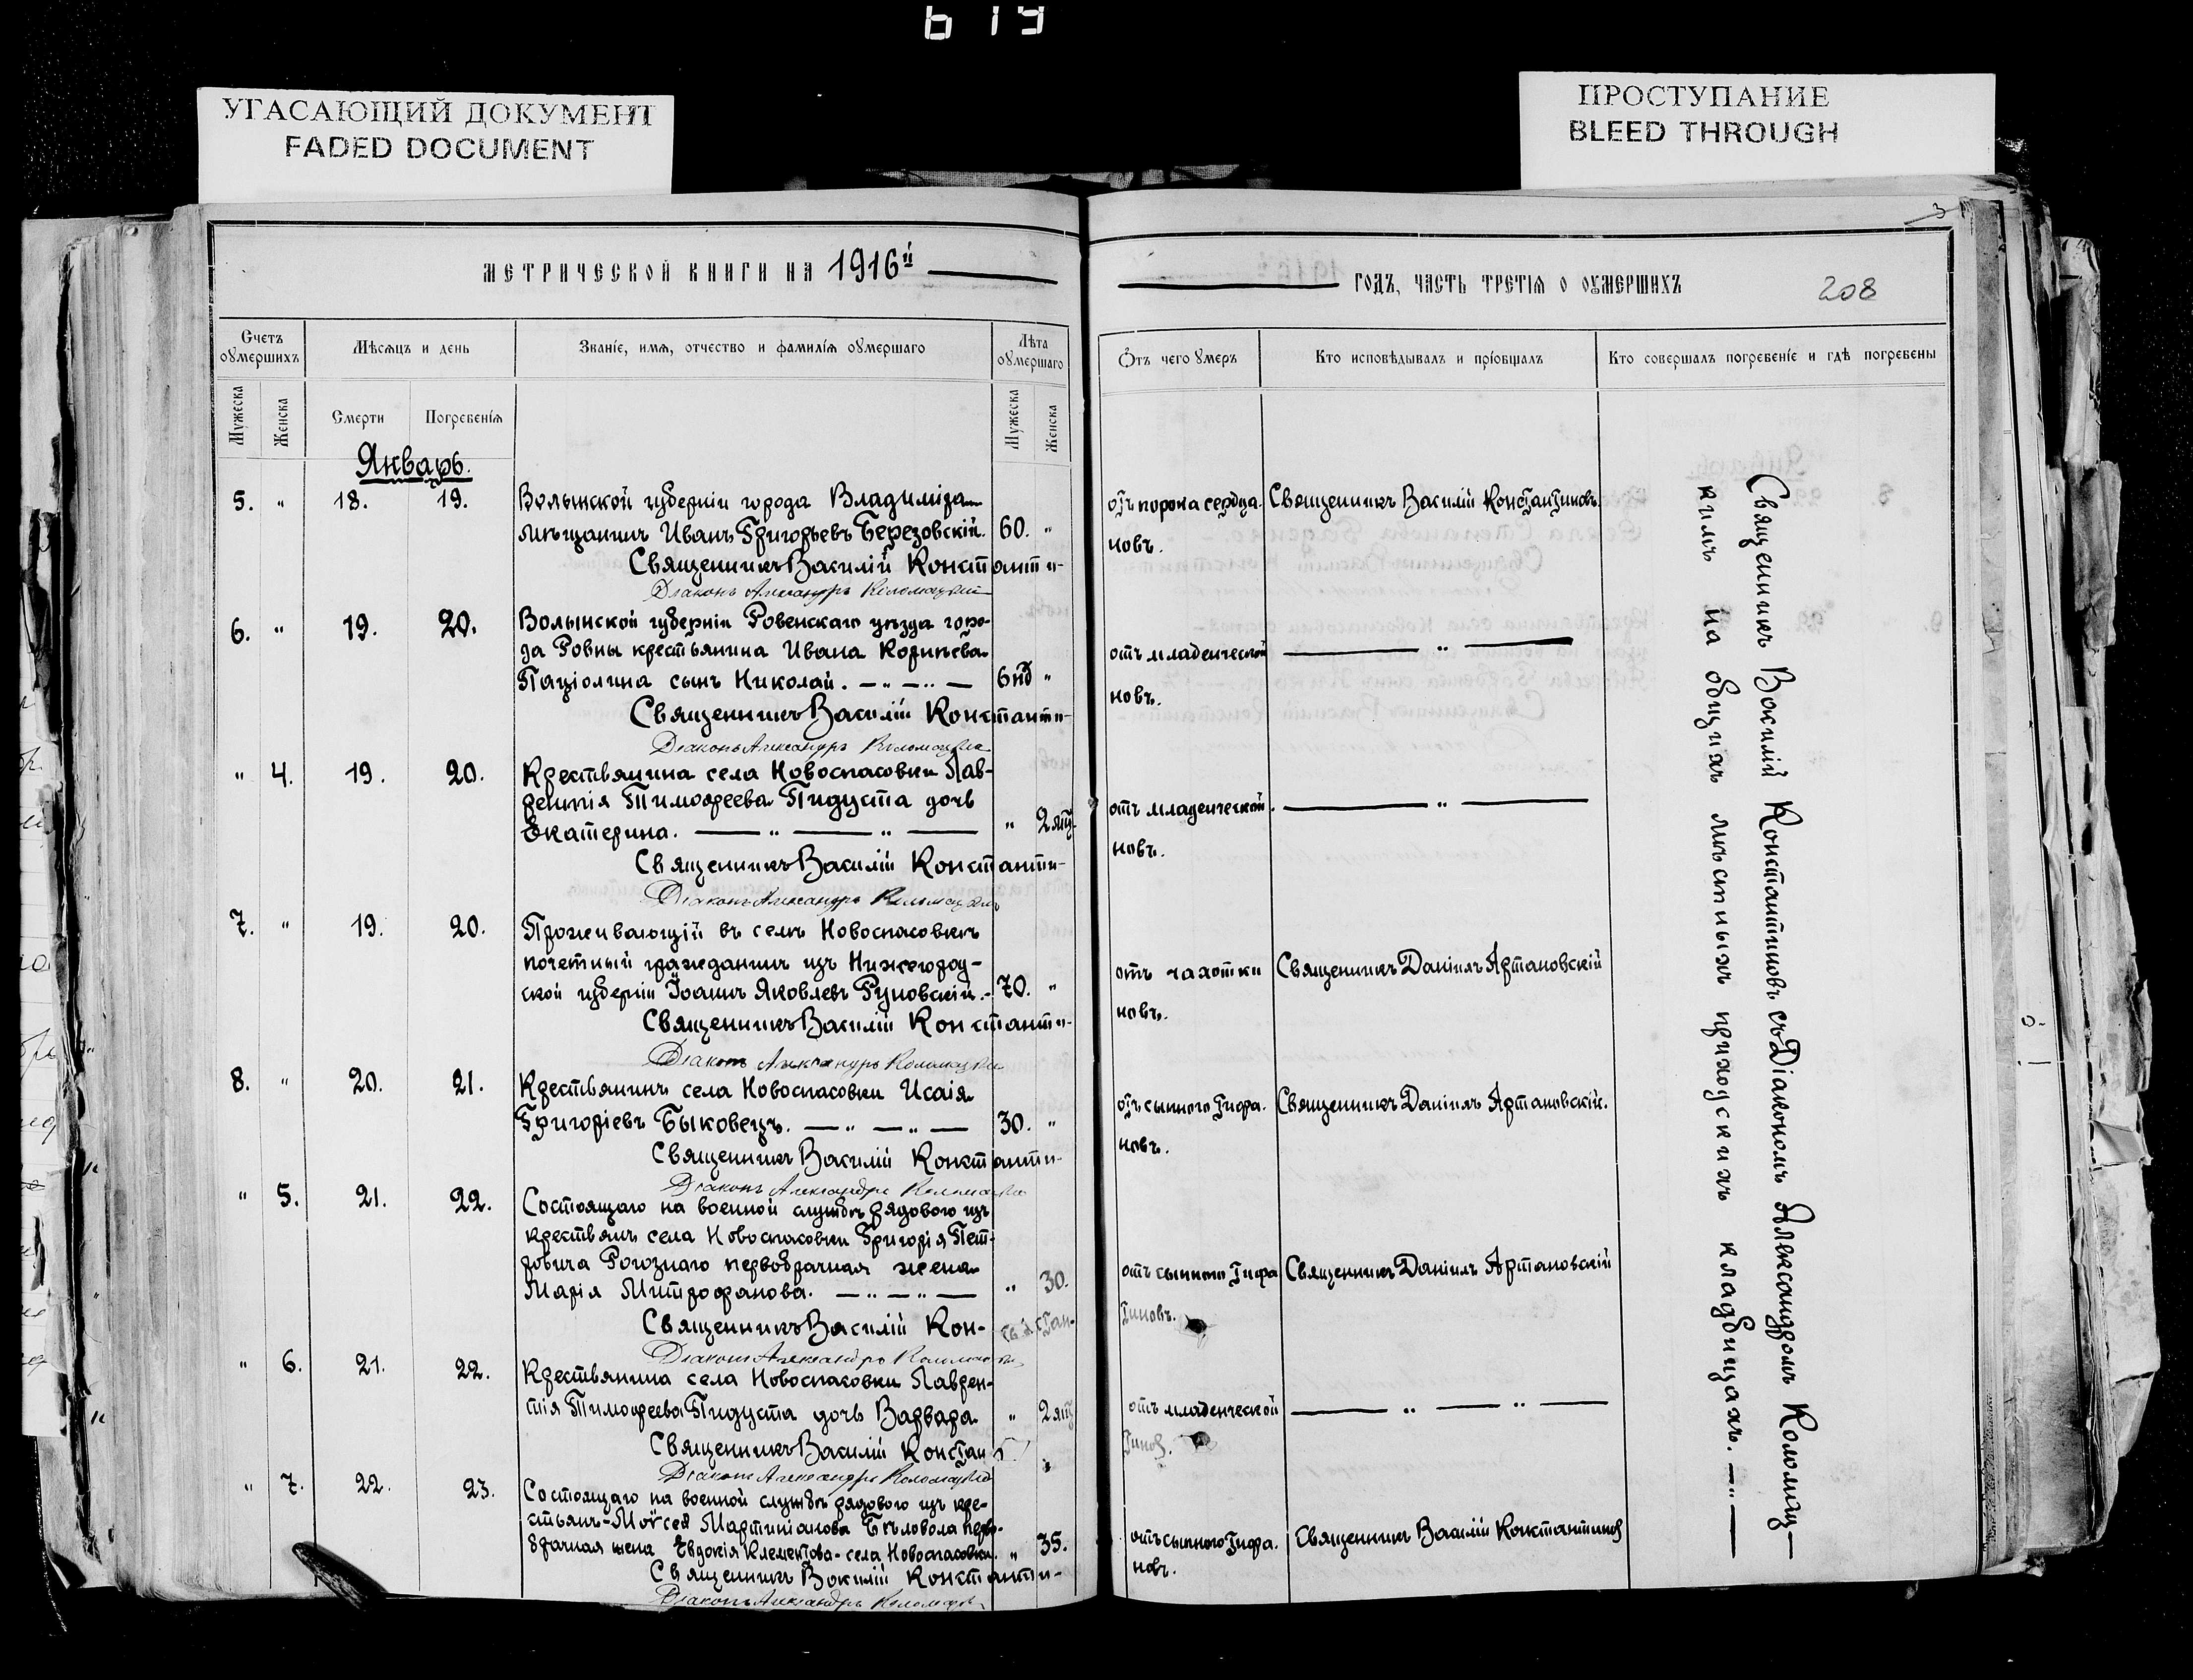 619
УГАСАЮЩИЙ ДОКУМЕНТ
FADED DOCUMENT
ПРОСТУПАНИЕ
BLEED THROUGH
3
МЕТРИЧЕСКОЙ КНИГИ НА 1916й
ГОДЪ, ЧАСТЬ ТРЕТІЯ О ОУМЕРШИХЪ
208
Счетъ оумершихъ
Мѣсяцъ и день
Званіе, имя, отчество и фамилія оумершаго
Лѣта оумершаго
Отъ чего умеръ
Кто исповѣдывалъ и пріобщалъ
Кто совершалъ погребеніе и гдѣ погребены
Мужеска
Женска
Смерти
Погребенія
Мужеска
Женска
Январь.
5. " 18. 19. Волынской губерніи города Владиміра
мѣщанинъ Иванъ Григорьевъ Березовскій. 60. " отъ порока сердца. Священникъ Василій Константиновъ.
Священникъ Василій Константи-
новъ.
Діаконъ Александръ Коломацкій
6. " 19. 20. Волынской губерніи Ровенскаго уѣзда горо-
да Ровны крестьянина Ивана Корнѣева
Паціолина сынъ Николай. — " — " — 6 нд " отъ младенческой — " —
Священникъ Василій Константи-
новъ.
Діаконъ Александръ Коломацкій
" 4. 19. 20. Крестьянина села Новоспасовки Лав-
рентія Тимофеева Пидуста дочь
Екатерина. — " — " — " 2 мц. отъ младенческой. — " —
Священникъ Василій Константи-
новъ.
Діаконъ Александръ Коломацкій
7. " 19. 20. Проживающій въ селѣ Новоспасовкѣ
почетный гражданинъ изъ Нижегород-
ской губерніи Іоаннъ Яковлевъ Руновскій. - 70. " отъ чахотки Священникъ Даніилъ Артановскій
Священникъ Василій Константи-
новъ.
Діаконъ Александръ Коломацкій
8. " 20. 21. Крестьянинъ села Новоспасовки Исаія
Григоріевъ Быковецъ. — " — " — 30. " отъ сыпного тифа. Священникъ Даніилъ Артановскій.
Священникъ Василій Константи-
новъ.
Діаконъ Александръ Коломацкій
" 5. 21. 22. Состоящаго на военной службѣ рядового изъ
крестьянъ села Новоспасовки Григорія Пет-
ровича Рогознаго первобрачная жена
Марія Митрофанова. — " — " — " 30. отъ сыпного тифа Священникъ Даніилъ Артановскій
Священникъ Василій Кон- стан-
тиновъ.
Діаконъ Александръ Коломацкій
" 6. 21. 22. Крестьянина села Новоспасовки Лаврен-
тія Тимофеева Пидуста дочь Варвара " 2 мц отъ младенческой — " — " —
Священникъ Василій Констан
тинов.
Діаконъ Александръ Коломацкій
" 7. 22. 23. Состоящаго на военной службѣ рядового изъ кре-
стьянъ - Моѵсея Мартиніанова Бѣловола перво-
брачная жена Евдокія Клементова - села Новоспасовки. " 35. отъ сыпного тифа. Священникъ Василій Константинов
Священникъ Василій Константи-
новъ.
Діаконъ Александръ Коломацкій
Священникъ Василій Константиновъ съ Діакономъ Александромъ Коломац-
кимъ на общихъ мѣстныхъ приходскихъ кладбищахъ. — " —